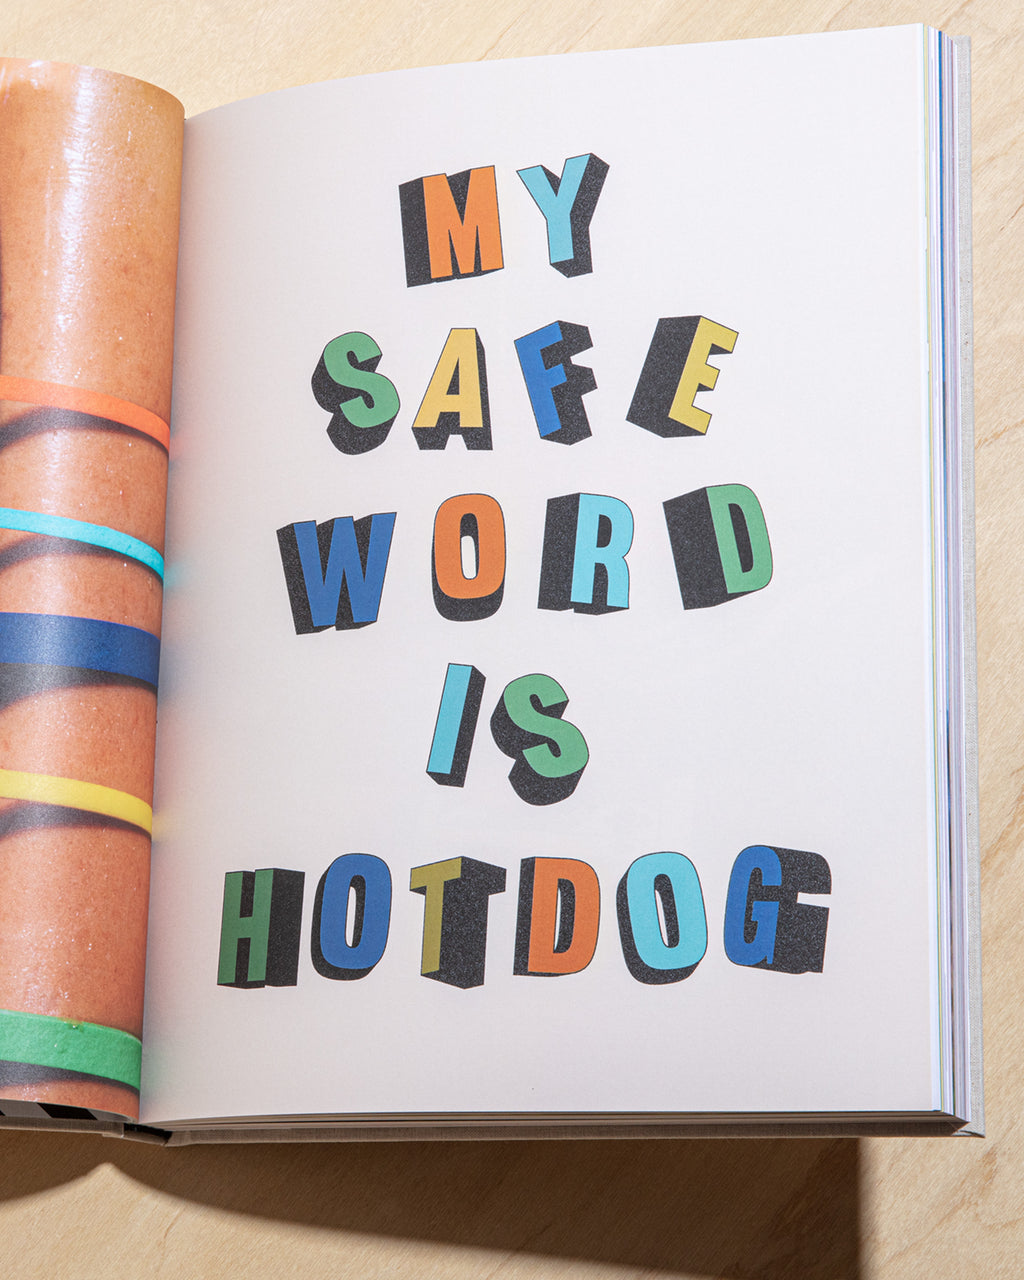 MY
SAFE
WORD
IS
HOTDOG